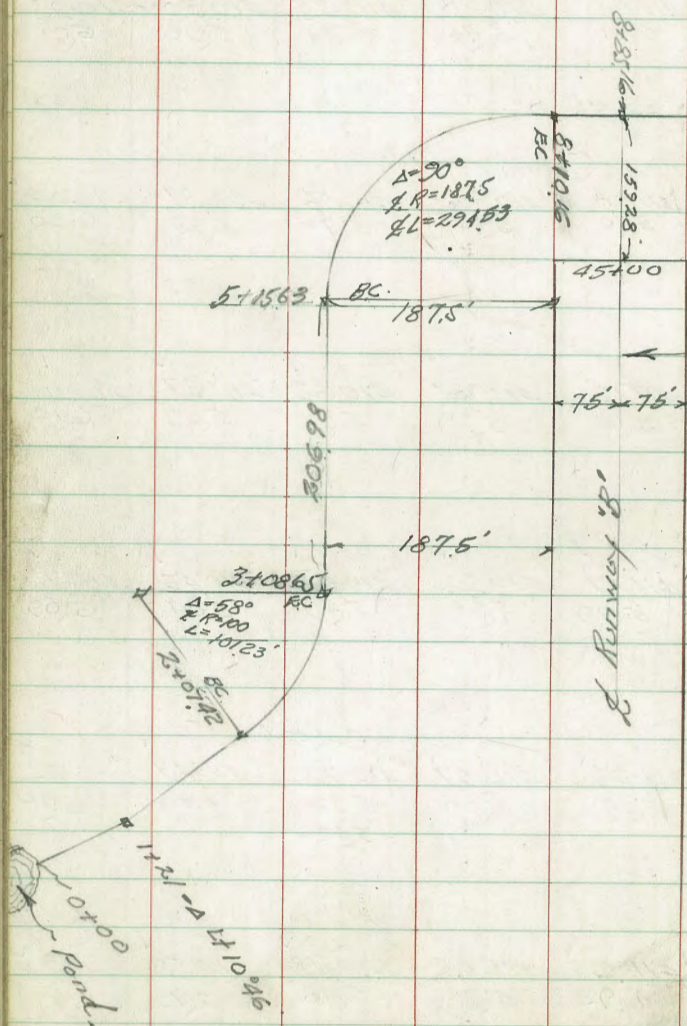 8+85.16
159.28
8+10.16
EC
Δ=90°
℄ R=187.5
℄ L=294.53
45+00
5+15.63
BC.
187.5'
75' 75'
206.98
187.5'
3+08.65
EC
Δ=58°
℄ R=100
L=101.23'
BC
2+07.42
℄ Runway
1+21 Δ Lt 10°46
0+00
Pond